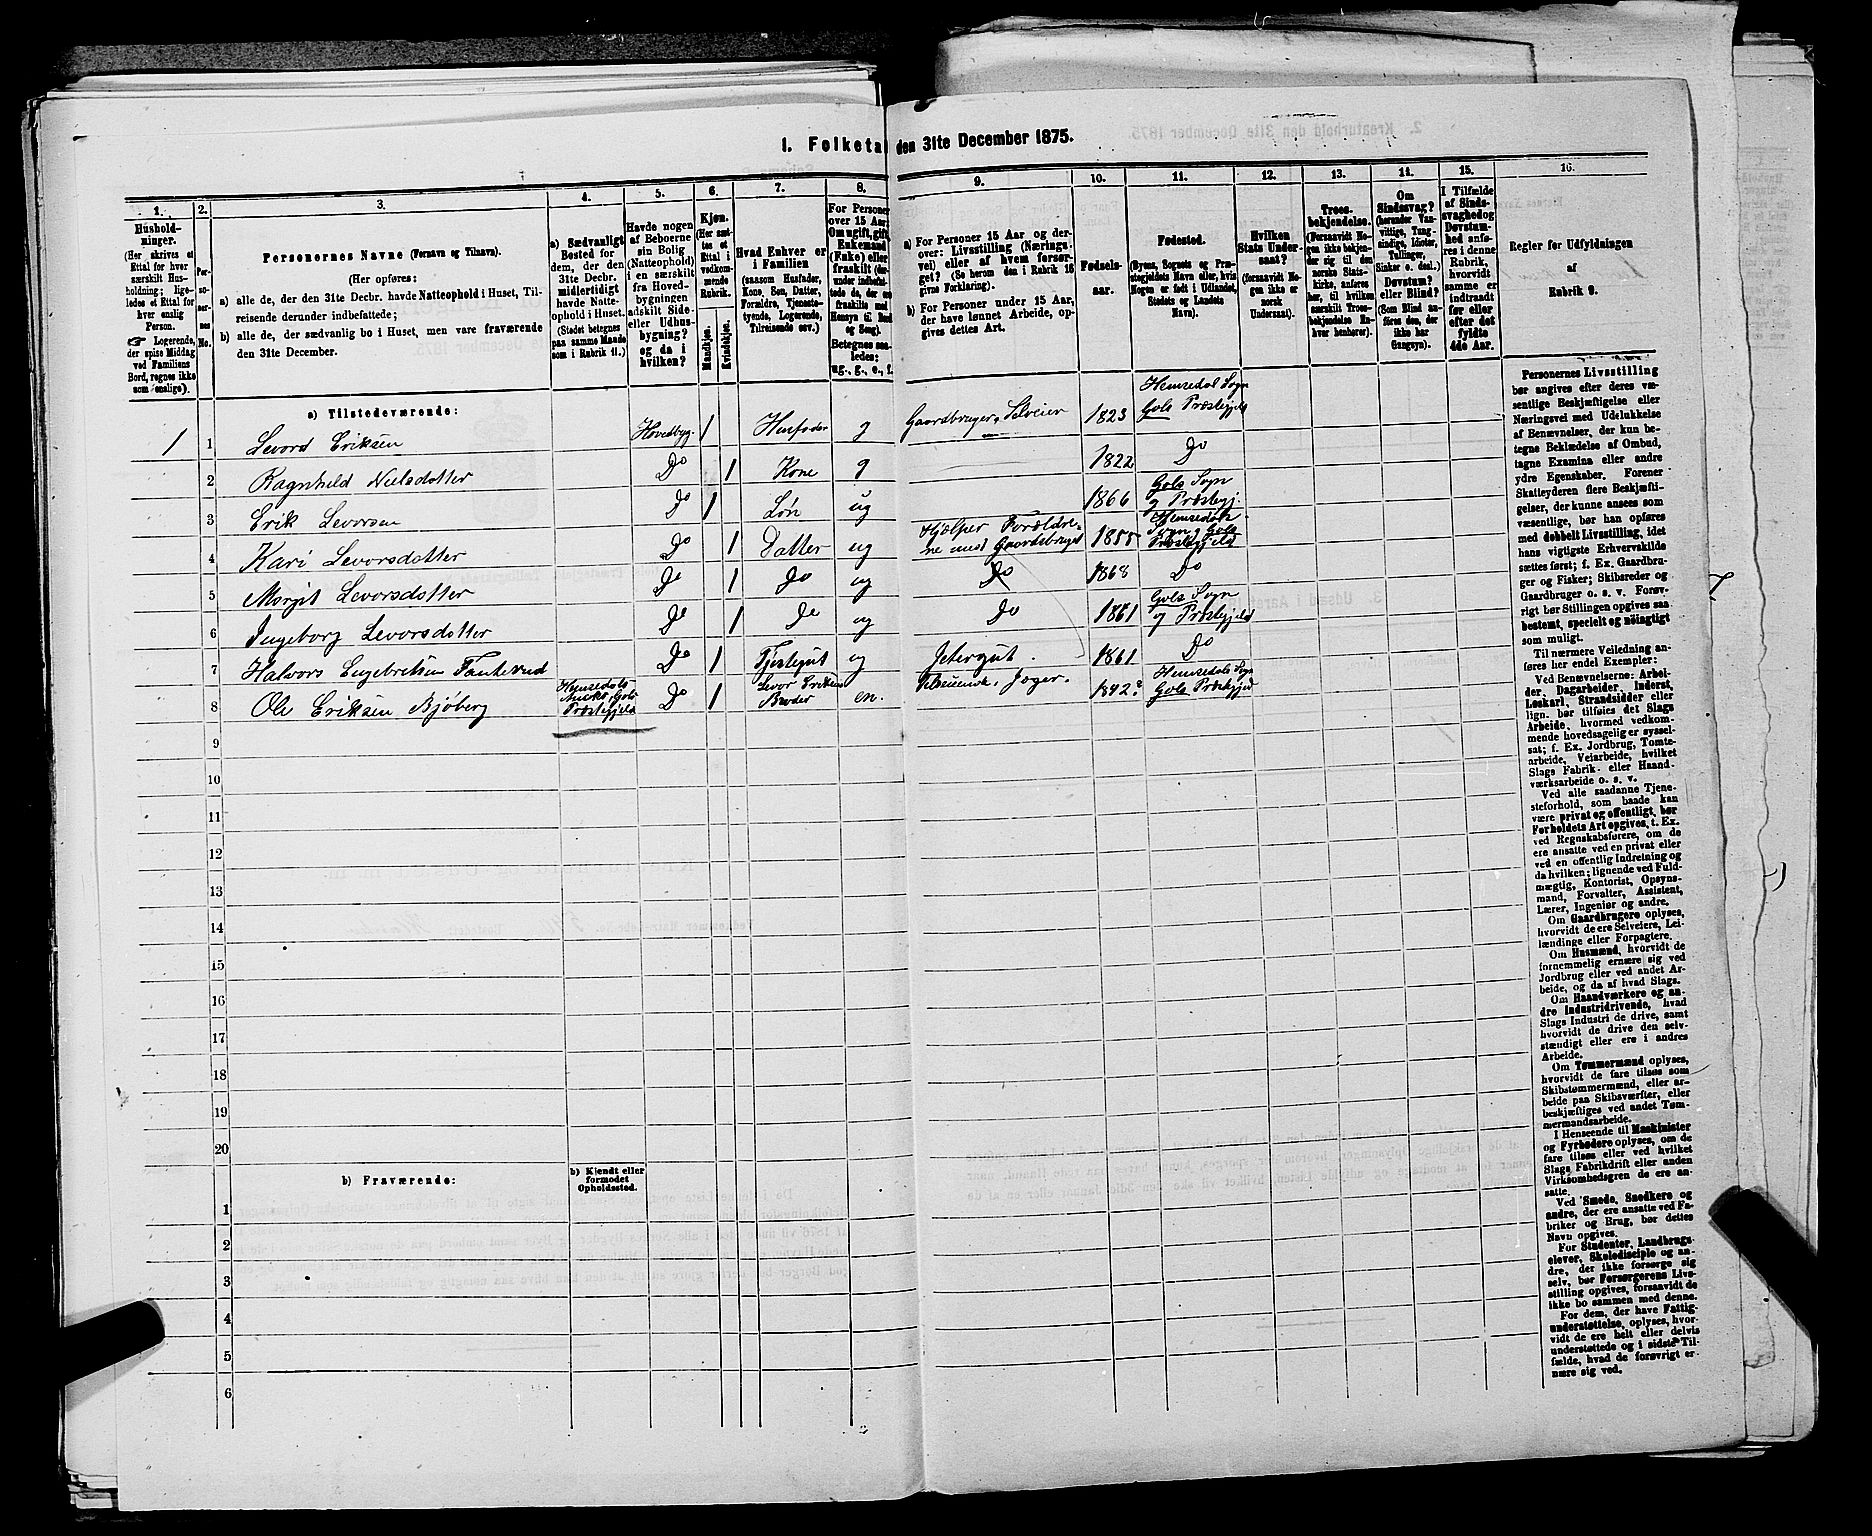 1. Folketal den 31te December 1875.
1.
Hushold-
ninger.
(Her skrives et
Ettal for hver
særskilt Hus-
holdning; lige-
ledes et Ettal for
hver enslig
Person.
☞ Logerende,
der spise Middag
ved Familiens
Bord, regnes ikke
som enslige).
2.
Per-
so-
ner-
nes
No.
3.
Personernes Navne (Fornavn og Tilnavn).
(Her opføres:
a) alle de, der den 31te Decbr. havde Natteophold i Huset, Til-
reisende derunder indbefattede;
b) alle de, der sædvanlig bo i Huset, men vare fraværende
den 31te December.
4.
a) Sædvanligt
Bosted for
dem, der den
31te Decbr.
midlertidigt
havde Natte-
ophold i Huset.
(Stedet betegnes
paa samme Maade
som i Rubrik 11.)
5.
Havde nogen
af Beboerne
sin Bolig
(Natteophold)
i en særskilt
fra Hoved-
bygningen
adskilt Side-
eller Udhus-
bygning?
og da i
hvilken?
6.
Kjøn.
(Her sæt-
tes et
Ettal i
vedkom-
mende
Rubrik.
Mandkjøn.
Kvindekjøn.
7.
Hvad Enhver er
i Familien
(saasom Husfader,
Kone, Søn, Datter,
Forældre, Tjeneste-
tyende, Logerende,
Tilreisende osv.)
8.
For Personer
over 15 Aar:
Om ugift, gift,
Enkemand
(Enke) eller
fraskilt (der-
under indbefat-
tede de, der ere
fraskilte med
Hensyn til Bord
og Seng).
Betegnes saa-
ledes:
ug., g., e., f.
9.
a) For Personer 15 Aar og der-
over: Livsstilling (Nærings-
vei) eller af hvem forsør-
get? (Se herom den i Rubrik 16
givne Forklaring).
b) For Personer under 15 Aar,
der have lønnet Arbeide, op-
gives dettes Art.
10.
Fødsels-
aar.
11.
Fødested.
(Byens, Sognets og Præ-
stegjeldets Navn eller, hvis
Nogen er født i Udlandet,
Stedets og Landets
Navn).
12.
Hvilken
Stats Under-
saat?
(forsaavidt No-
gen ikke er
norsk
Undersaat).
13.
Troes-
bekjendelse.
(Forsaavidt No-
gen ikke bekjen-
der sig til den
norske Stats-
kirke, anføres
her, til hvilken
særskilt Troes-
bekjendelse En-
hver henhører).
14.
Om
Sindssvag?
(herunder Van-
vittige, Tung-
sindige, Idioter,
Tullinger,
Sinker o. desl.)
Døvstum?
eller Blind?
(Som Blind an-
føres den, der
ikke har
Gangsyn).
15.
I Tilfælde
af Sinds-
svaghed og
Døvstum-
hed anfø-
res i denne
Rubrik,
hvorvidt
samme er
indtraadt
før eller
efter det
fyldte
4de Aar.
16.
Regler for Udfyldningen
af
Rubrik 9.
a) Tilstedeværende:
1 1 Levord Eriksen Hovedbyg. 1 Husfader g Gaardbruger, Selveier 1823 Hemsedal Sogn
Gols Præstegjeld
2 Ragnhild Nielsdotter Do 1 Kone g 1822 Do
3 Erik Levorsen Do 1 Søn ug 1866 Gols Sogn
og Præstegj.
4 Kari Levorsdotter Do 1 Datter ug Hjælper Forældre-
ne med Gaardsbruget 1855 Hemsedals
Sogn, Gols
Præstegjeld
5 Margit Levorsdotter Do 1 Do ug Do 1868 Do
6 Ingeborg Levorsdotter Do 1 Do ug Do 1861 Gols Sogn
og Præstegjeld
7 Halvors Engebretsen Fantesund Do 1 Tjenstegut ug Jetergut. 1861 Do
8 Ole Eriksen Bjøberg Hemsedals
Gols
Præstegjeld Do 1 Levor Eriksens
Broder en. Jæger. 1842? Hemsedals Sogn
Gols Præstegjeld
9
10
11
12
13
14
15
16
17
18
19
20
b) Fraværende:
b) Kjendt eller
formodet
Opholdssted.
1
2
3
4
5
6
Personernes Livsstilling
bør angives efter deres væ-
sentlige Beskjæftigelse eller
Næringsvei med Udelukkelse
af Benævnelser, der kun be-
tegne Beklædelse af Ombud,
tagne Examina eller andre
ydre Egenskaber. Forener
Skatteyderen flere Beskjæfti-
gelser, der kunne ansees som
væsentlige, bør han opføres
med dobbelt Livsstilling, idet
hans vigtigste Erhvervskilde
sættes først; f. Ex. Gaardbru-
ger og Fisker; Skibsreder og
Gaardbruger o. s. v. Forøv-
rigt bør Stillingen opgives saa
bestemt, specielt og nöiagtigt
som muligt.
Til nærmere Veiledning an-
føres her endel Exempler:
Ved Benævnelserne: Arbei-
der, Dagarbeider, Inderst,
Løskarl, Strandsidder eller
lign. bør tilføies det Slags
Arbeide, hvormed vedkom-
mende hovedsagelig er syssel-
sat; f. Ex. Jordbrug, Tomte-
arbeide, Veiarbeide, hvilket
Slags Fabrik- eller Haand-
værksarbeide o. s. v.
Ved alle saadanne Tjene-
steforhold, som baade kan
være privat og offentligt, bør
Forholdets Art opgives, t. Ex.
ved Regnskabsførere, om de
ere ansatte ved en privat eller
ved en offentlig Indretning og
da hvilken; lignende ved Fuld-
mægtig, Kontorist, Opsyns-
mand, Forvalter, Assistent,
Lærer, Ingeniør og andre.
Om Gaardbrugere oplyses,
hvorvidt de ere Selveiere, Lei-
lændinge eller Forpagtere.
Om Husmænd, hvorvidt de
fornemmelig ernære sig ved
Jordbrug eller ved andet Ar-
beide, og da af hvad Slags.
Om Haandværkere og an-
dre Industridrivende, hvad
Slags Industri de drive, samt
hvorvidt de drive den selv-
stændigt eller ere i andres
Arbeide.
Om Tømmermænd oplyses,
hvorvidt de fare tilsøs som
Skibstømmermænd, eller ar-
beide paa Skibsværfter, eller
beskjæftiges ved andet Tøm-
mermandsarbeide.
I Henseende til Maskinister
og Fyrbødere oplyses, om de
fare tilsøs eller ved hvilket
Slags Fabrikdrift eller anden
Virksomhedsgren de ere an-
satte.
Ved Smede, Snedkere og
andre, der ere ansatte ved Fa-
briker og Brug, bør dettes
Navn opgives.
For Studenter, Landbrugs-
elever, Skoledisciple og an-
dre, der ikke forsørge sig
selv, bør Forsørgerens Livs-
stilling opgives, forsaavidt de
ikke bo sammen med denne.
For dem, der have Fattig-
understøttelse, oplyses, hvor-
vidt de ere helt eller delvis
understøttede og i sidste Til-
fælde, hvad de forøvrigt er-
nære sig ved.